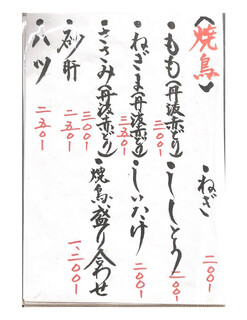 〈焼鳥〉
・もも(丹波赤どり)
三〇〇-
・ねぎま(丹波赤どり)
三五〇-
・ささみ(丹波赤どり)
三〇〇-
・砂肝
二五〇-
・ハツ
二五〇-
・ねぎ
二〇〇-
・ししとう
二〇〇-
・しいたけ
二〇〇-
・焼鳥盛り合わせ
一、二〇〇-